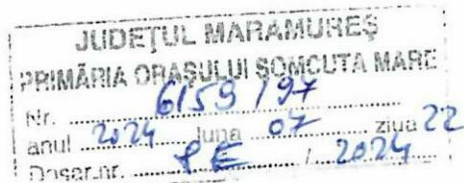 JUDEŢUL MARAMUREŞ
PRIMĂRIA ORAŞULUI ŞOMCUTA MARE
Nr. 6159 / 97
anul 2024 luna 07 ziua 22
Dosar nr. PE / 2024